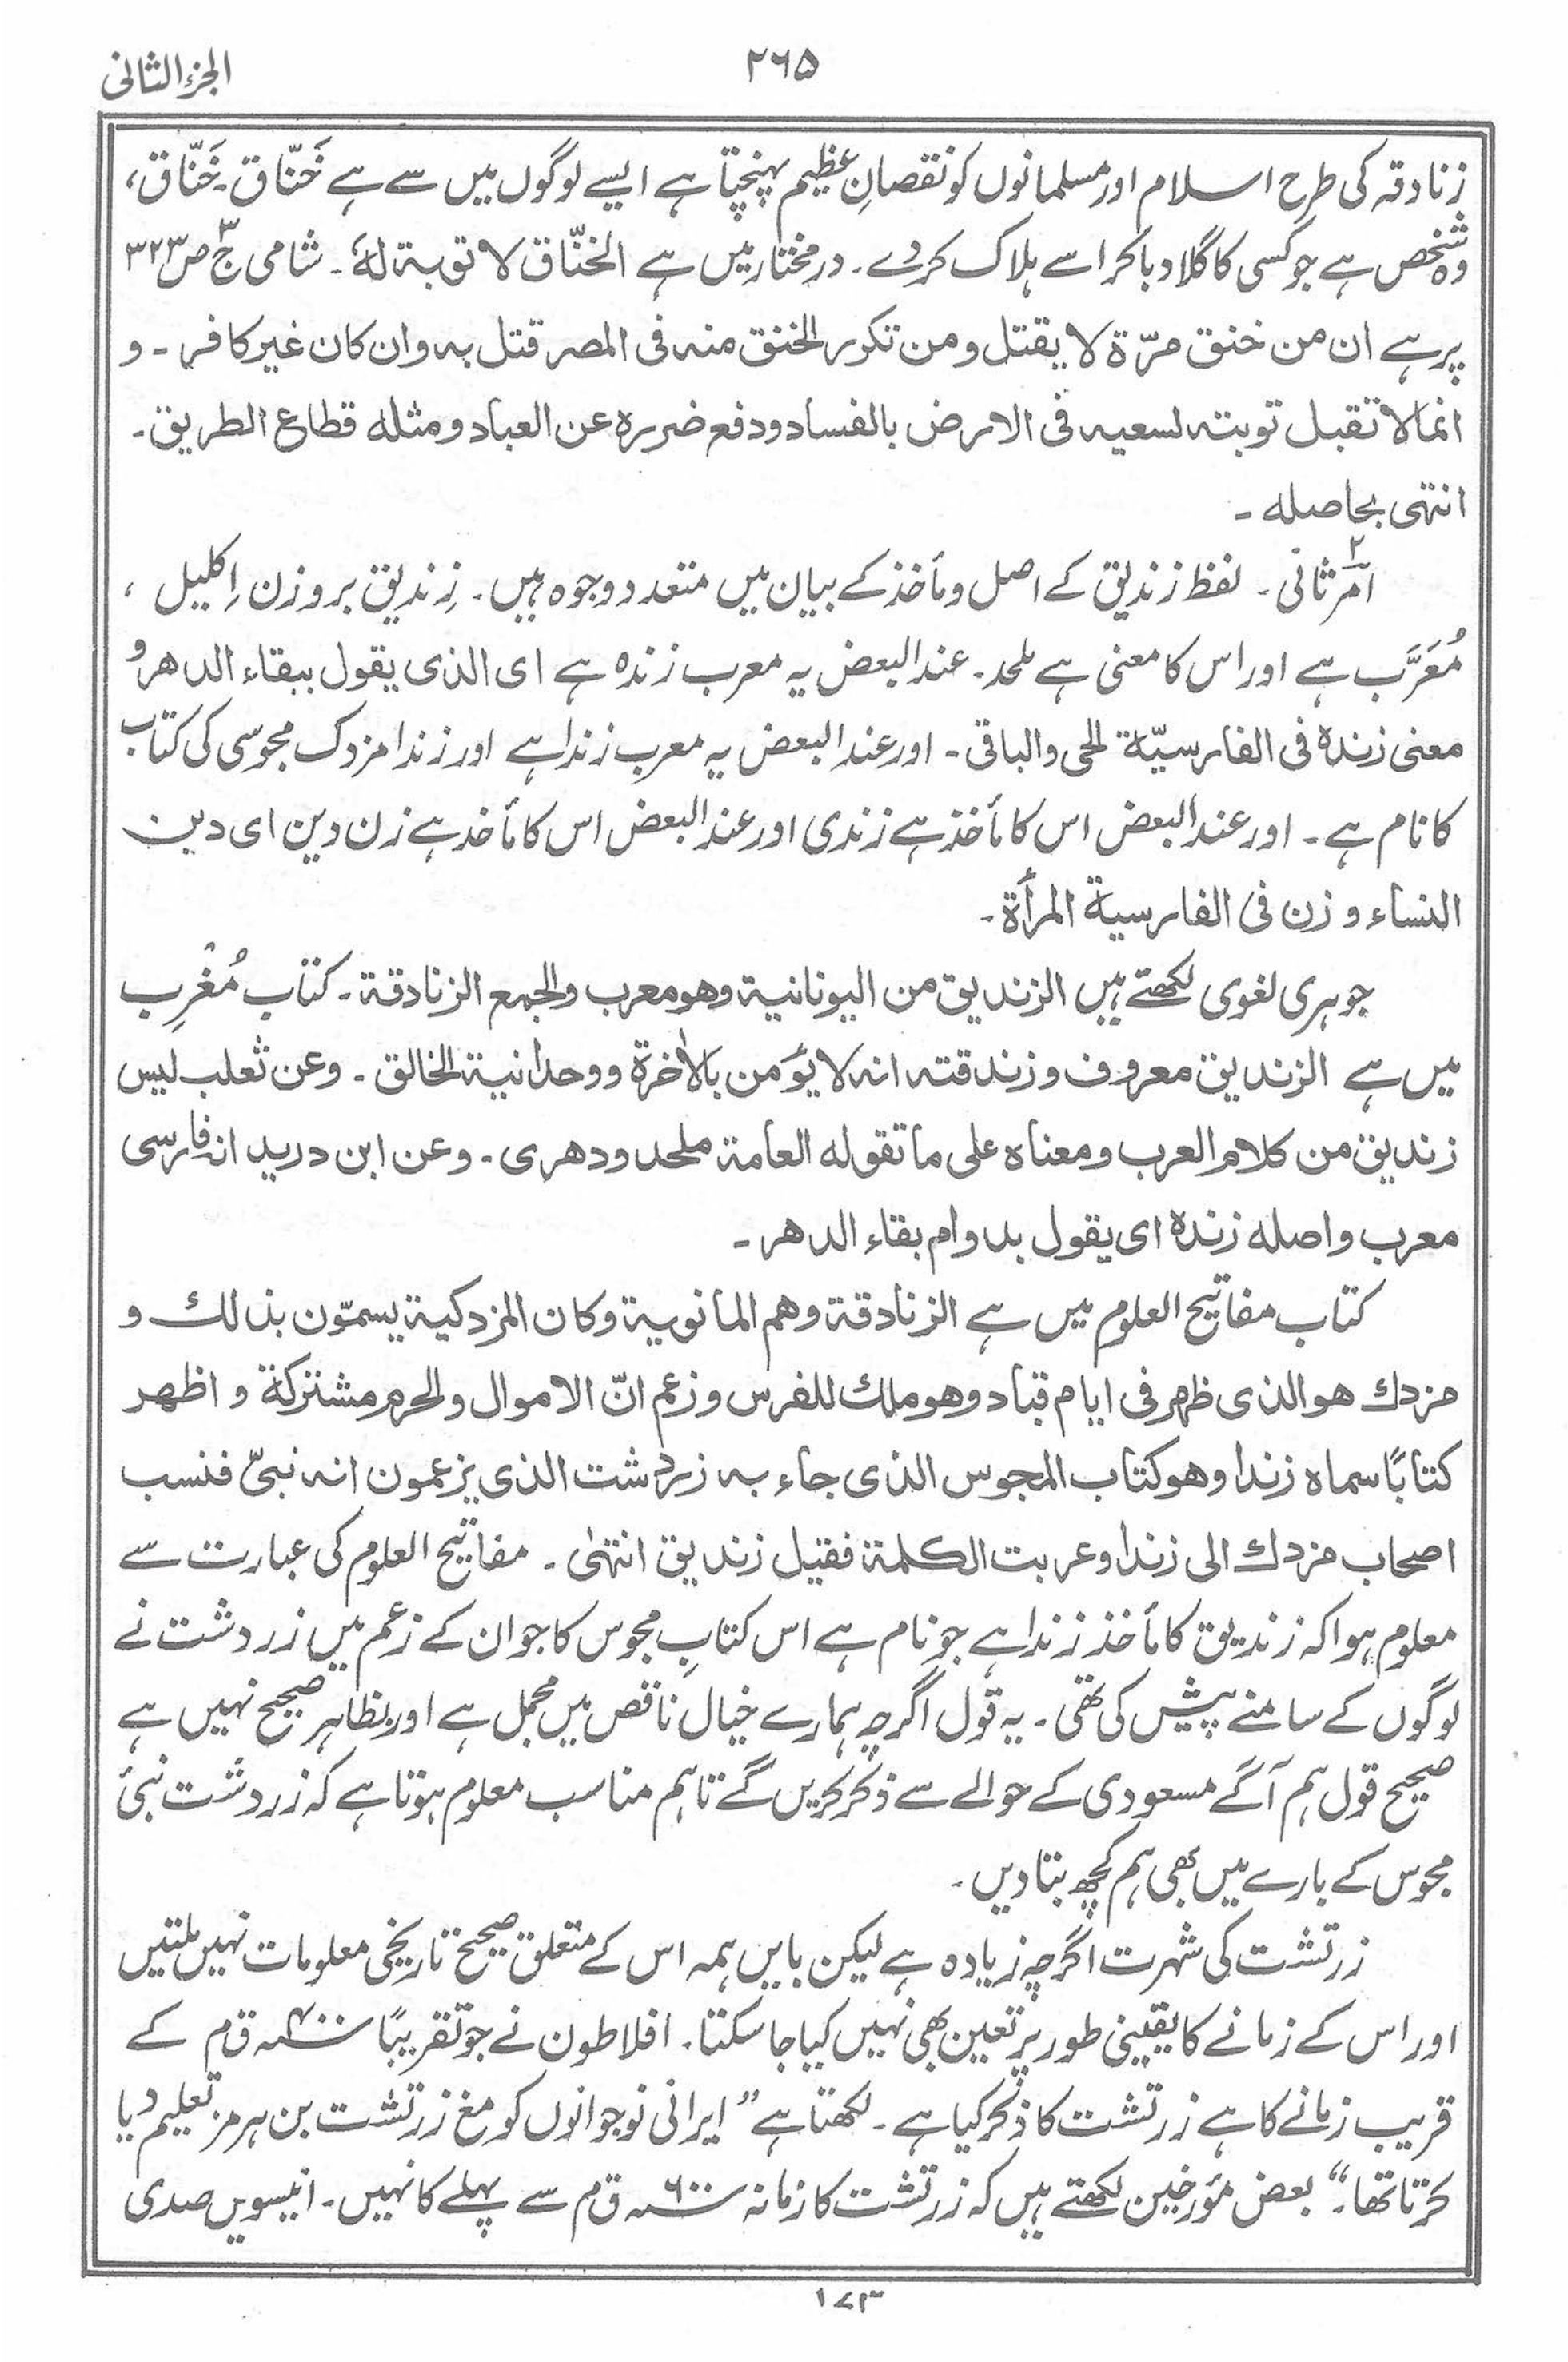 الجزء الثانی
۲۶۵
زنادقہ کی طرح اسلام اور مسلمانوں کو نقصانِ عظیم پہنچتا ہے ایسے لوگوں میں سے ہے خَنّاق۔ خَنّاق،
وہ شخص ہے جو کسی کا گلا دباکر اسے ہلاک کر دے۔ درمختار میں ہے الخنّاق لا توبۃ لہٗ۔ شامی ج۳ ص۳۲۳
پر ہے ان من خنق مرّۃ لا یقتل ومن تکرر الخنق منہ فی المصر قتل بہ وان کان غیر کافر۔ و
انما لا تقبل توبتہ لسعیہ فی الارض بالفساد ودفع ضررہ عن العباد ومثلہ قطاع الطریق۔
انتہی بحاصلہ۔
امرِ ثانی۲۔ لفظ زندیق کے اصل و مأخذ کے بیان میں متعدد وجوہ ہیں۔ زِندیق بروزن اِکلیل،
مُعَرَّب ہے اور اس کا معنی ہے ملحد۔ عند البعض یہ معرب زندہ ہے ای الذی یقول ببقاء الدھر و
معنی زندۃ فی الفارسیّۃ الحی والباقی۔ اور عند البعض یہ معرب زندا ہے اور زندا مزدک مجوسی کی کتاب
کا نام ہے۔ اور عند البعض اس کا مأخذ ہے زندی اور عند البعض اس کا مأخذ ہے زن دین ای دین
النساء و زن فی الفارسیۃ المرأۃ۔
جوہری لغوی لکھتے ہیں الزندیق من الیونانیۃ وھو معرب والجمع الزنادقۃ۔ کتاب مُغْرِب
میں ہے الزندیق معروف وزندقتہ انہ لا یؤمن بالاٰخرۃ ووحدانیۃ الخالق۔ وعن ثعلب لیس
زندیق من کلام العرب ومعناہ علی ما تقولہ العامۃ ملحد ودھری۔ وعن ابن درید انہ فارسی
معرب واصلہ زندۃ ای یقول بدوام بقاء الدھر۔
کتاب مفاتیح العلوم میں ہے الزنادقۃ وھم المانویۃ وکان المزدکیۃ یسمّون بذلك و
مزدك ھو الذی ظھر فی ایام قباد وھو ملك للفرس وزعم انّ الاموال والحرم مشترکۃ و اظھر
کتابًا سماہ زندا وھو کتاب المجوس الذی جاء بہ زردشت الذی یزعمون انہ نبیّ فنسب
اصحاب مزدك الی زندا وعربت الکلمۃ فقیل زندیق انتہٰی۔ مفاتیح العلوم کی عبارت سے
معلوم ہوا کہ زندیق کا مأخذ زندا ہے جو نام ہے اس کتابِ مجوس کا جو ان کے زعم میں زردشت نے
لوگوں کے سامنے پیش کی تھی۔ یہ قول اگرچہ ہمارے خیالِ ناقص میں مجمل ہے اور بظاہر صحیح نہیں ہے
صحیح قول ہم آگے مسعودی کے حوالے سے ذکر کریں گے تاہم مناسب معلوم ہوتا ہے کہ زردشت نبیٔ
مجوس کے بارے میں بھی ہم کچھ بتادیں۔
زرتشت کی شہرت اگرچہ زیادہ ہے لیکن بایں ہمہ اس کے متعلق صحیح تاریخی معلومات نہیں ملتیں
اور اس کے زمانے کا یقینی طور پر تعین بھی نہیں کیا جاسکتا۔ افلاطون نے جو تقریبًا ۴۰۰ ؁ ق م کے
قریب زمانے کا ہے زرتشت کا ذکر کیا ہے۔ لکھتا ہے ”ایرانی نوجوانوں کو مغ زرتشت بن ہرمز تعلیم دیا
کرتا تھا۔“ بعض مؤرخین لکھتے ہیں کہ زرتشت کا زمانہ ۶۰۰ ؁ ق م سے پہلے کا نہیں۔ انیسویں صدی
۱۷۳